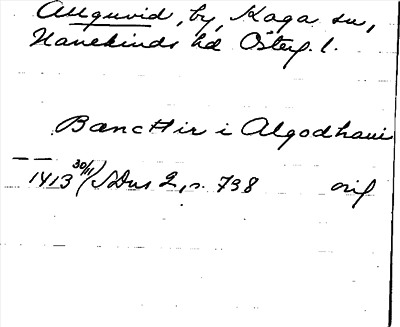 Allguvid, by, Kaga sn,
Hanekinds hd Österg. l.
Bancthir i Algodhawi
1413 30/11 SDns 2, s. 798 orig